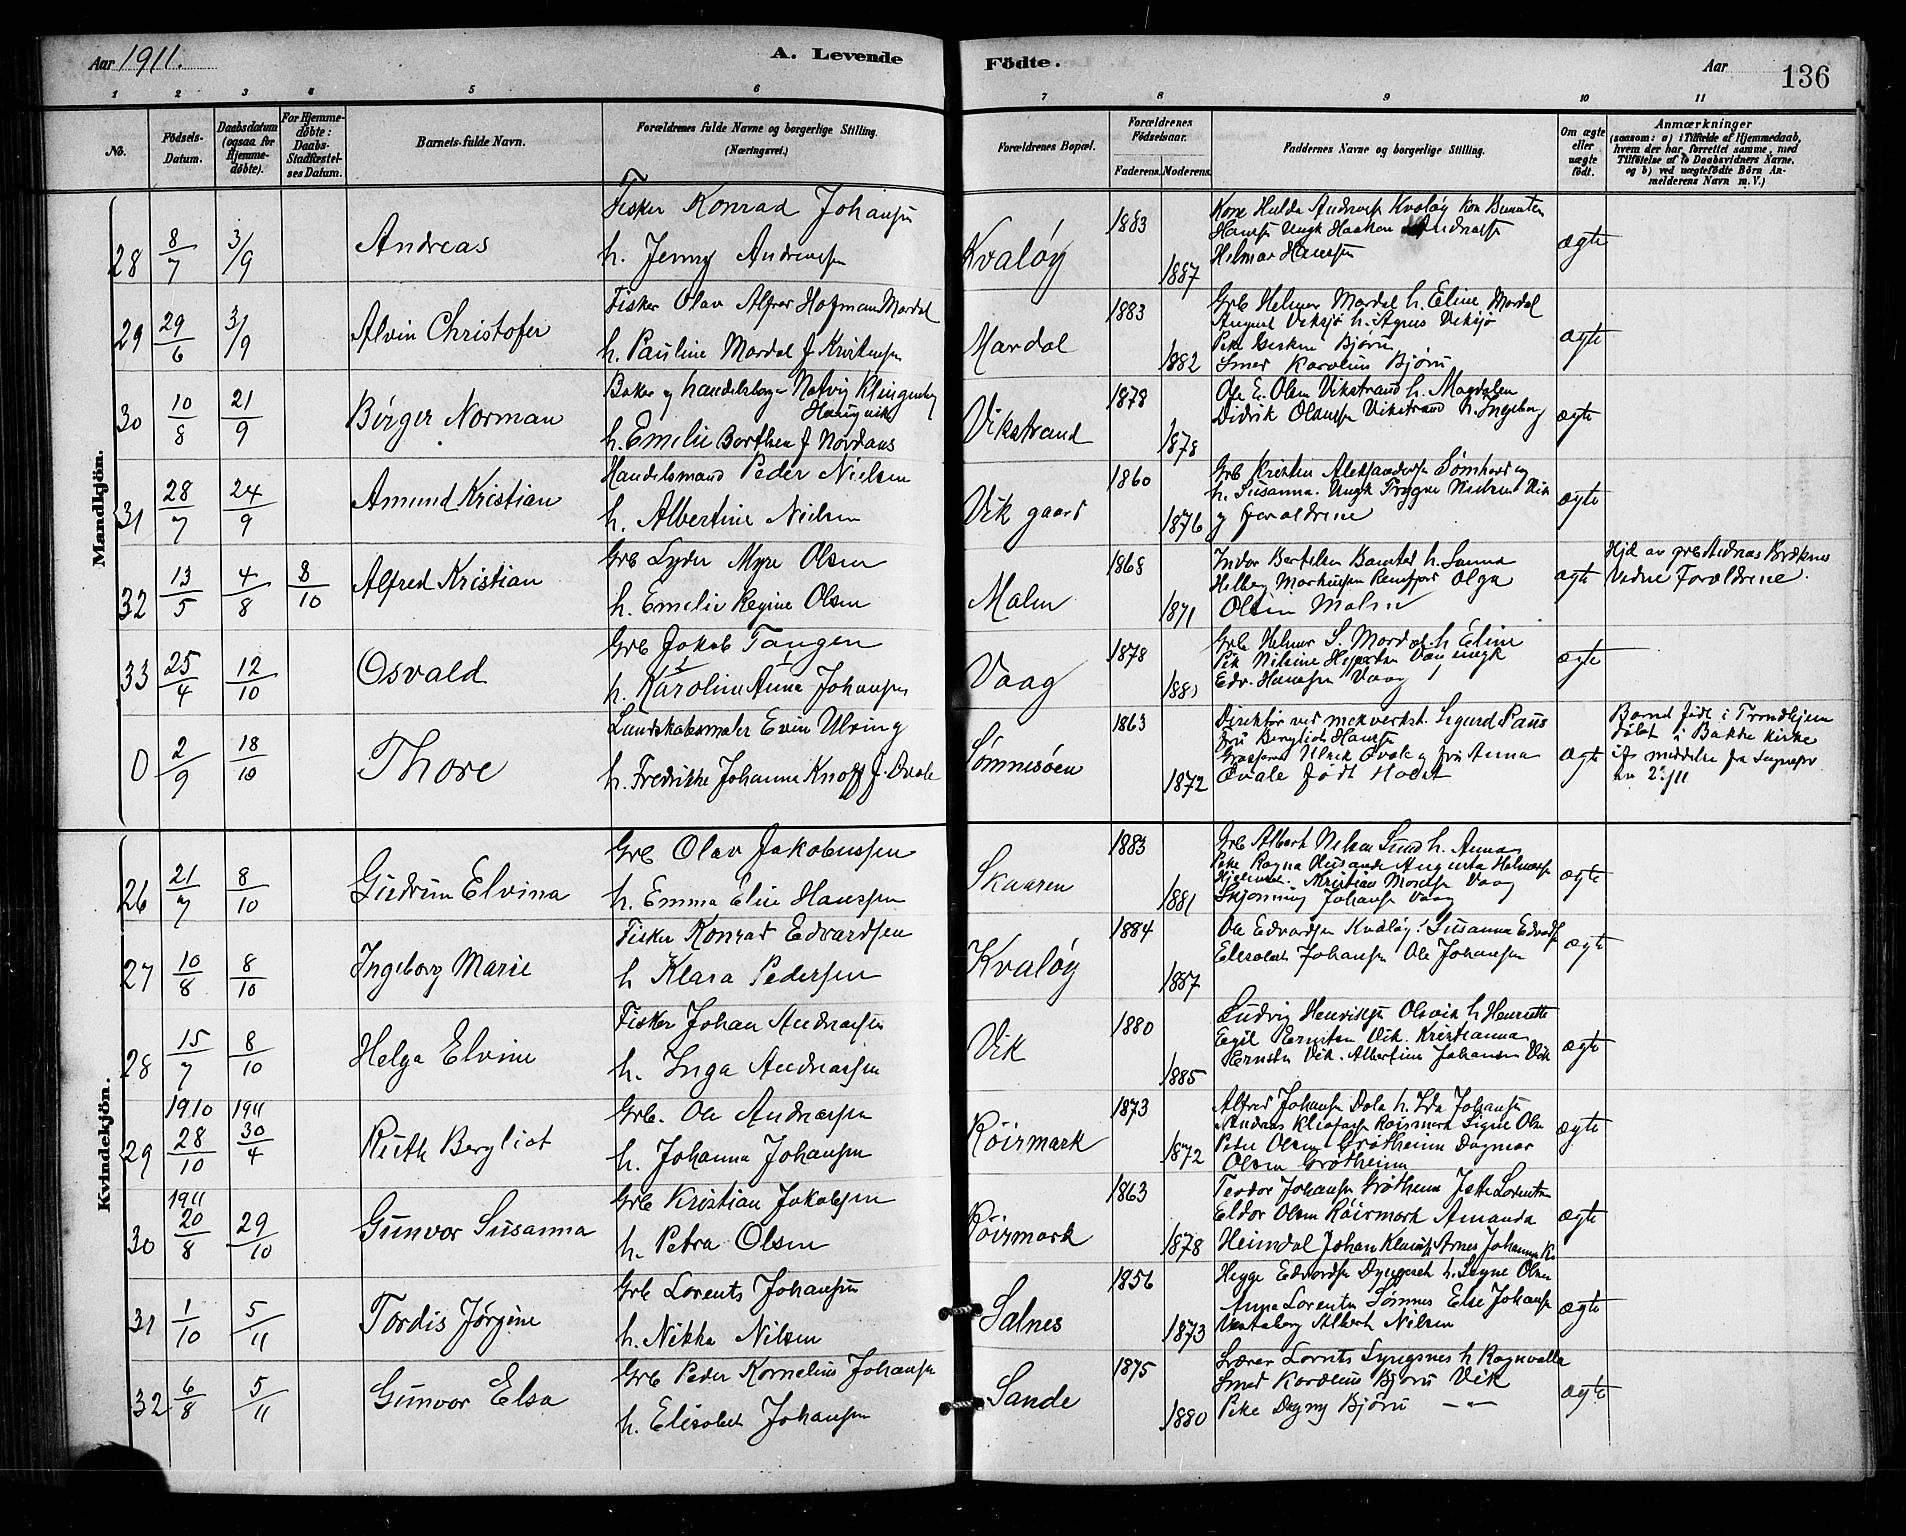 Aar 1911.
A. Levende Födte.
Aar 136
1 2 3 4 5 6 7 8 9 10 11
No.
Födsels-Datum.
Daabsdatum (ogsaa for Hjemme-döbte).
For Hjemme-döbte: Daabs-Stadfæstel-ses Datum.
Barnets fulde Navn.
Forældrenes fulde Navne og borgerlige Stilling. (Næringsvei.)
Forældrenes Bopæl.
Forældrenes Födselsaar.
Faderens. Moderens.
Faddernes Navne og borgerlige Stilling.
Om ægte eller uægte födt.
Anmærkninger
(saasom: a) i Tilfælde af Hjemmedaab, hvem der har forrettet samme, med Tilföielse af to Daabsvidners Navne, og b) ved uægtefödte Börn An-melderens Navn m. V.)
Mandkjön.
28 8/7 3/9 Andreas
Fisker Konrad Johansen
h. Jenny Andreassen
Kvaløy 1883 1887
Kone Hulda Andreassen Kvaløy
Hansen Ungk Haakon Andreassen
Helmar Hanssen
ægte
29 29/6 3/9 Alvin Christofer
Fisker Olav Alfred Hofman Mardal
h. Pauline Mardal f Kristensen
Mardal 1883 1882
Grb Helmer Mardal h. Eline Mardal
August Viksjø h. Agnes Viksjø
Pike Bjøru
Smed Karolius Bjøru
ægte
30 10/8 21/9 Birger Norman
Baker og handelsborger Natvig Klingenberg
h. Emelie Borthen f Nordaas
Vikstrand 1878 1878
Ole E. Olsen Vikstrand h. Magdalen
Didrik Olaussen Vikstrand h. Ingeborg
ægte
31 28/7 24/9 Amund Kristian
Handelsmand Peder Nielsen
h. Albertine Nielsen
Vik gaard 1860 1876
Grb Kristen Aleksandersen Sømhovd og
h. Susanna. Ungk Trygve Nielsen Vik
og forældrene
ægte
32 13/5 4/8 8/10 Alfred Kristian
Grb Lyder Myre Olsen
h. Emelie Regine Olsen
Malm 1868 1871
Indor Bertelsen h. Sanna
Helberg Markussen Olga
Olsen Malm
ægte
Hjd av grb Andreas
Vidne Forældrene.
33 25/4 12/10 Osvald
Grb Jakob Tangen
h. Karoline Anna Johansen
2 1
Vaag 1878
Grb Helmer S. Mardal h Eline
Pik Nilsine Vaag ungk
Edv. Hanssen Vaag
ægte
0 2/9 18/10 Thore
Landskabsmaler Even Ulving
h. Fredrikke Johanna Knoff f. Qvale
Sømnesøen 1863 1872
Direktør ved mekverkst. Sigurd Paus
fru Bergliot Hanssen
Grosserer Ulrik Qvale og fru Anna
Qvale født Hoest
ægte
Barnet født i Trondhjem
døbt i Bakke kirke
if. middelse fra Sognepr
Kvindekjön.
26 21/7 8/10 Gudrun Elvina
Grb Olav Jakobussen
h. Emma Eline Hanssen
Skaaren 1883 1881
Grb Albert Nelsen Sund h. Anna
Pike Ragna Augusta
Kristian Vaag
Johansen Vaag
ægte
27 10/8 8/10 Ingeborg Marie
Fisker Konrad Edvardsen
h Klara Pedersen
Kvaløy 1884 1887
Ole Edvardsen Kvaløy. Susanna Edvards
Elesabet Johansen Ole Johansen
ægte
28 15/7 8/10 Helga Elvine
Fisker Johan Andreassen
h. Inga Andreassen
Vik 1880 1885
Ludvig Henriksen Olsvik h Henriette
Egil Ernsten Vik. Kristianna
Ernsten Vik. Albertine Johansen Vik
ægte
29 1910 28/10 1911 30/4 Ruth Bergliot
Grb. Ole Andreassen
h. Johanna Johansen
Röirmark 1873 1872
Alfred Johansen Dala h. Ida Johansen
Andreas Röirmark Signe Olsen
Peder Olsen Grøtheim Dagmar
Olsen Grøtheim
ægte
30 1911 20/8 29/10 Gunvor Susanna
Grb Kristian Jakobsen
h. Petra Olsen
Röirmark 1863 1878
Teodor Johansen Grøtheim Jette Lorentsen
Eldor Olsen Röirmark Amanda
Heimdal Johan Arnes Johanna
ægte
31 1/10 5/11 Tordis Jørgine
Grb Lorents Johansen
h. Nikka Nilsen
Salnes 1856 1873
Hegge Edvardsen h. Signe Olsen
Anna Lorentsen Sømnes Else Johansen
Albert Nilsen
ægte
32 6/8 5/11 Gunvor Elsa
Grb Peder Kornelius Johansen
h. Elisabet Johansen
Sande 1875 1880
Lærer Lornts Lyngsnes h Ragnvalla
Smed Karolius Bjøru Vik
Pike Dagny Bjøru — —
ægte